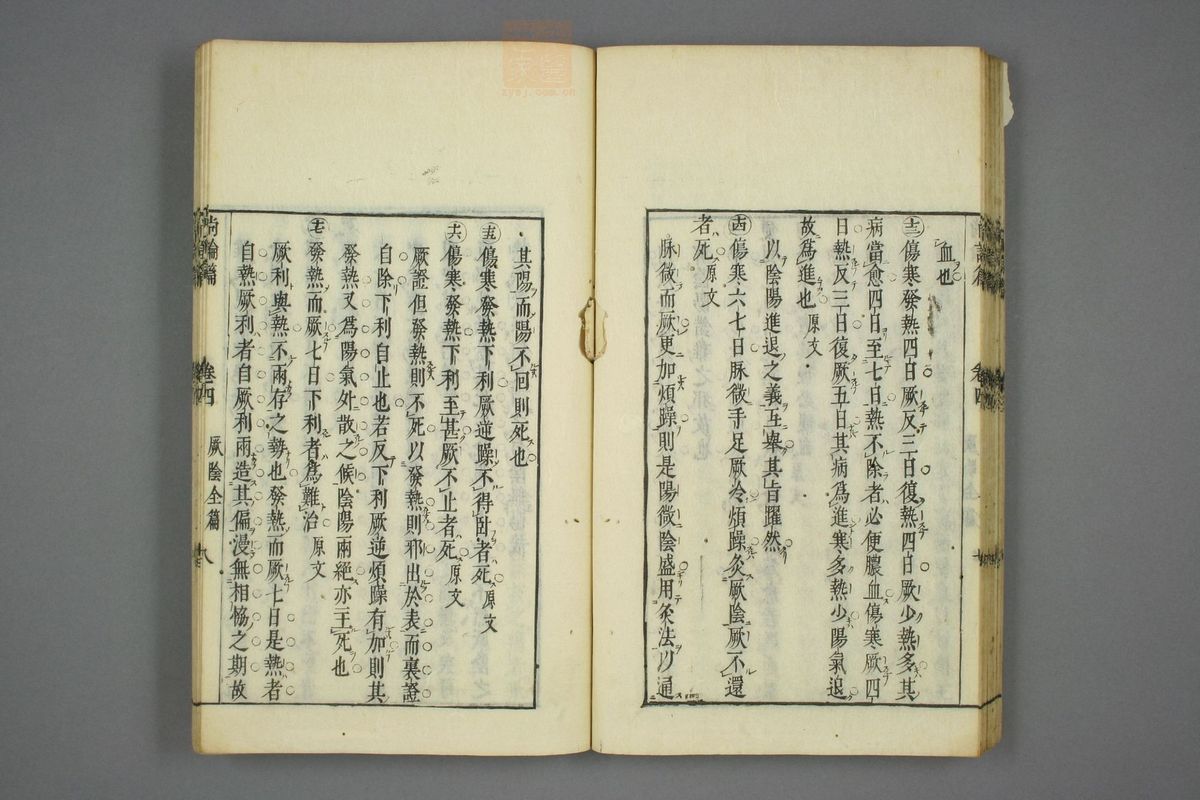 血也
十三傷寒發熱四日厥反三日復熱四日厥少熱多其
病當愈四日至七日熱不除者必便膿血傷寒厥四
日熱反三日復厥五日其病爲進寒多熱少陽氣退
故爲進也原文
以陰陽進退之義互舉其旨躍然
十四傷寒六七日脉微手足厥冷煩躁灸厥陰厥不還
者死原文
脉微而厥更加煩躁則是陽微陰盛用灸法以通
其陽而陽不回則死也
十五傷寒發熱下利厥逆躁不得臥者死原文
十六傷寒發熱下利至甚厥不止者死原文
厥證但發熱則不死以發熱則邪出於表而裏證
自除下利自止也若反下利厥逆煩躁有加則其
發熱又爲陽氣外散之候陰陽兩絕亦主死也
十七發熱而厥七日下利者爲難治原文
厥利與熱不兩存之勢也發熱而厥七日是熱者
自熱厥利者自厥利兩造其偏漫無相恊之期故
尚論篇 卷四 厥陰全篇 十八
zysj.com.cn